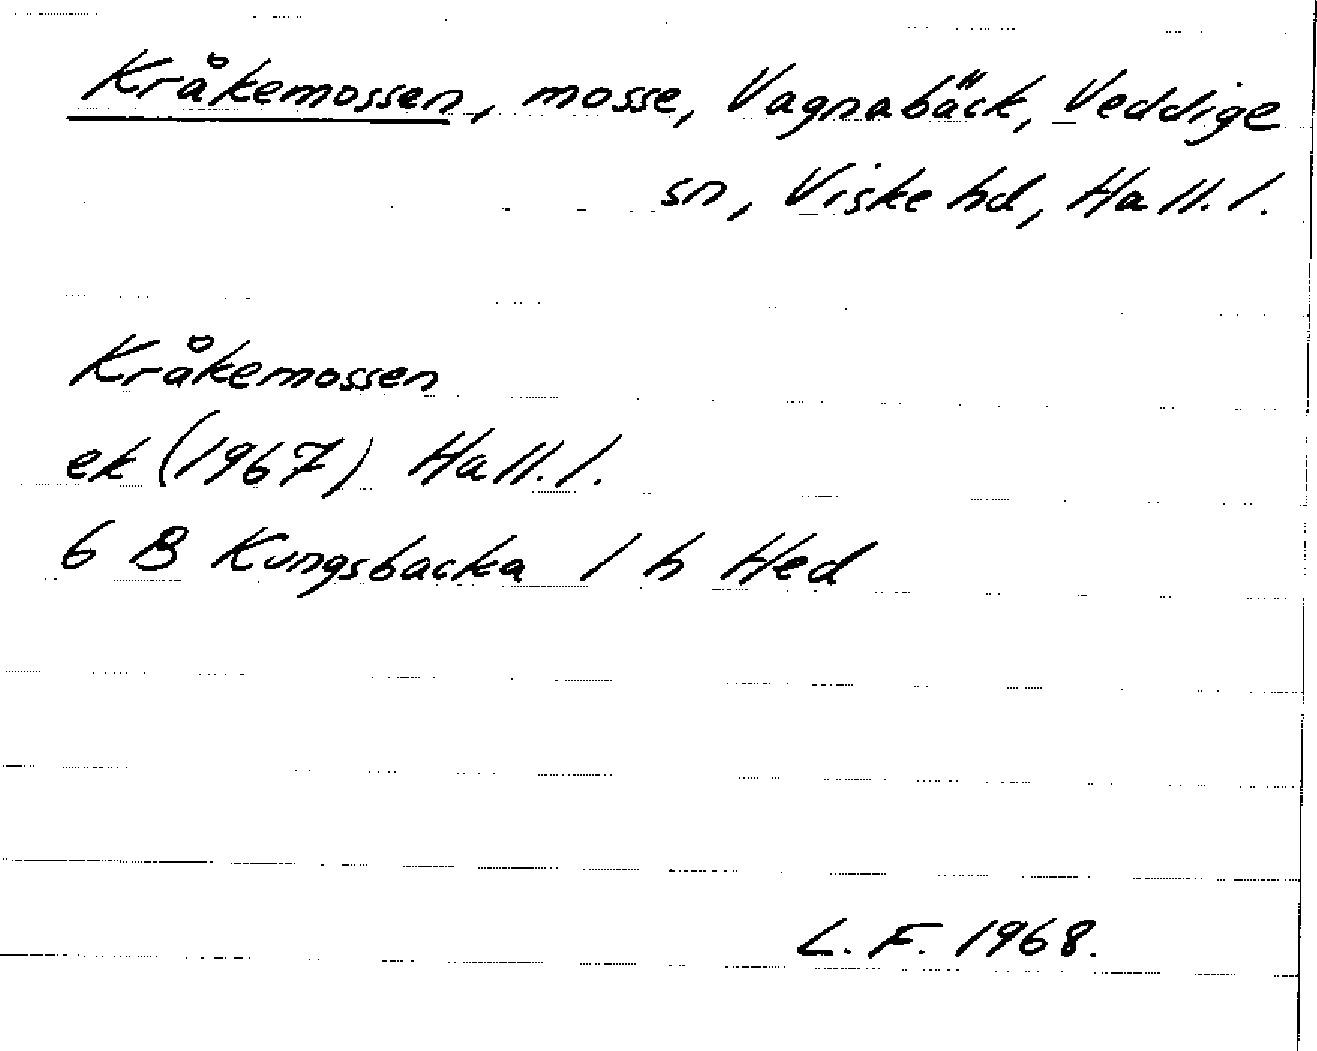 Kråkemossen, mosse, Vagnabäck, Veddige
sn, Viske hd, Hall. l.
Kråkemossen
ek (1967) Hall. l.
6 B Kungsbacka 1 h Hed
L. F. 1968.